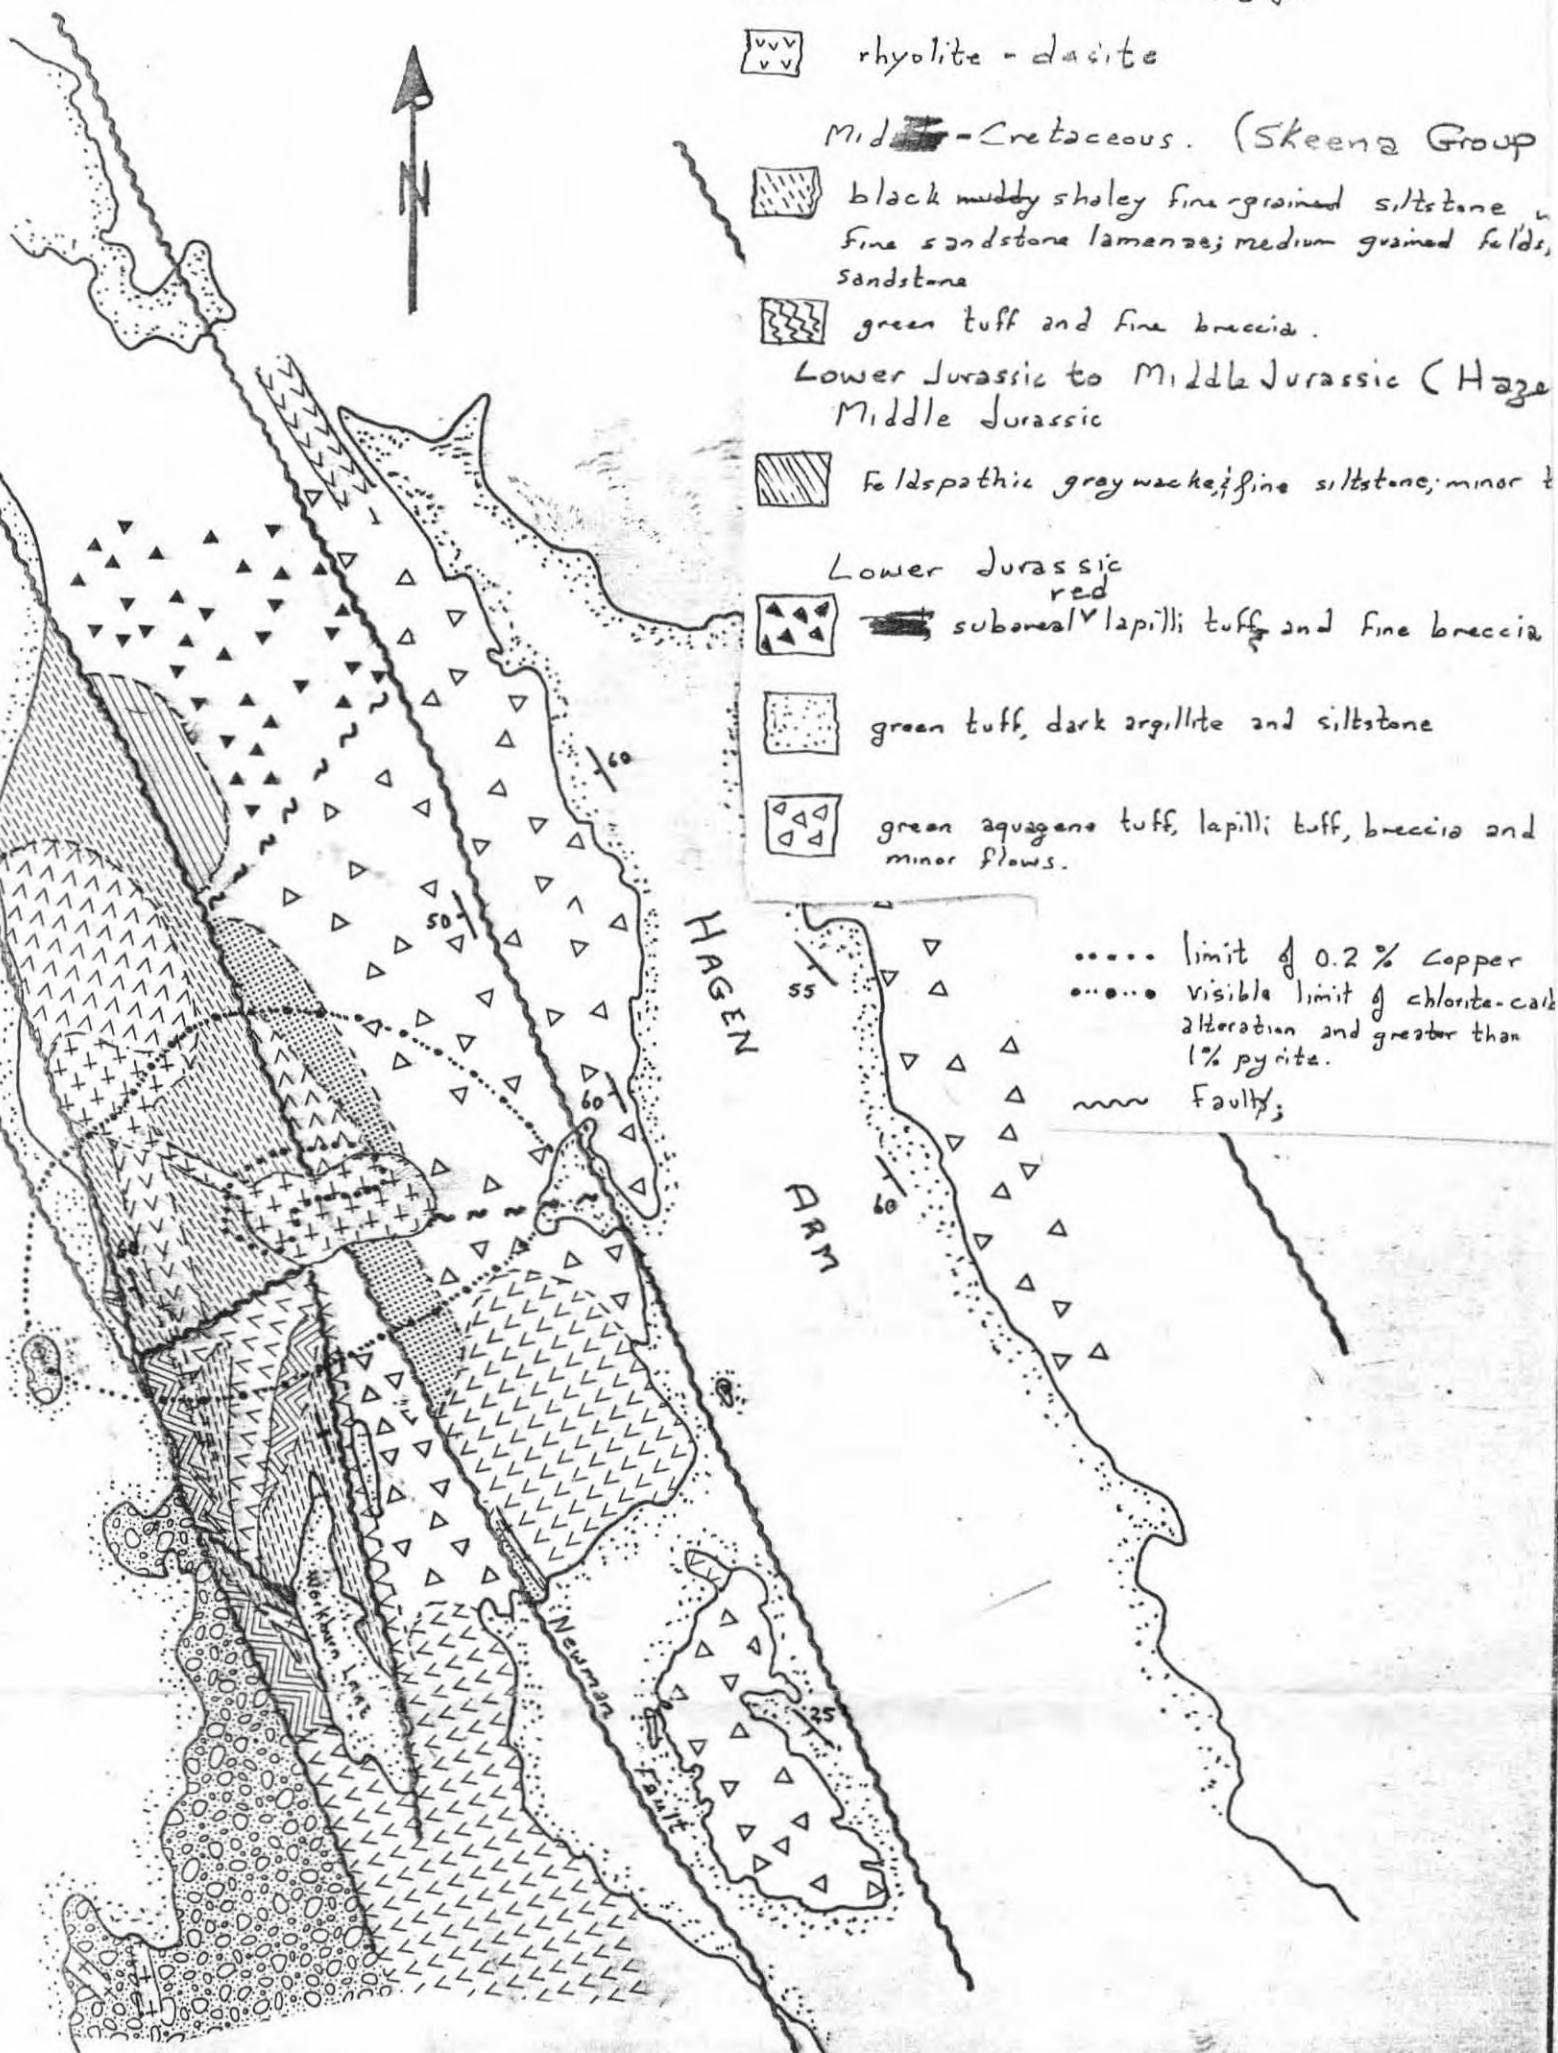 rhyolite - dacite
Mid - Cretaceous. (Skeena Group
black muddy shaley fine-grained siltstone
fine sandstone lamenae; medium grained felds,
sandstone
green tuff and fine breccia.
Lower Jurassic to Middle Jurassic (Haze
Middle Jurassic
feldspathic greywacke, & fine siltstone; minor t
Lower Jurassic
red
subareal ᵛ lapilli tuff and fine breccia
green tuff, dark argillite and siltstone
green aquagene tuff, lapilli tuff, breccia and
minor flows.
limit of 0.2 % copper
visible limit of chlorite-carb
alteration and greater than
1% pyrite.
Fault;
N
HAGEN
ARM
60
50
55
60
60
60
25
Newman
Fault